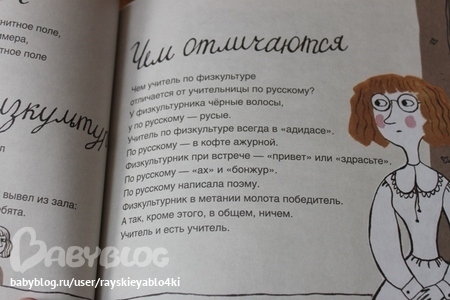 нитное поле,
мера,
тное поле
изкультур
л
вывел из зала:
бята.
Чем отличаются
Чем учитель по физкультуре
отличается от учительницы по русскому?
У физкультурника чёрные волосы,
у по русскому — русые.
Учитель по физкультуре всегда в «адидасе».
По русскому — в кофте ажурной.
Физкультурник при встрече — «привет» или «здрасьте».
По русскому — «ах» и «бонжур».
По русскому написала поэму.
Физкультурник в метании молота победитель.
А так, кроме этого, в общем, ничем.
Учитель и есть учитель.
BABYBLOG
babyblog.ru/user/rayskieyablo4ki